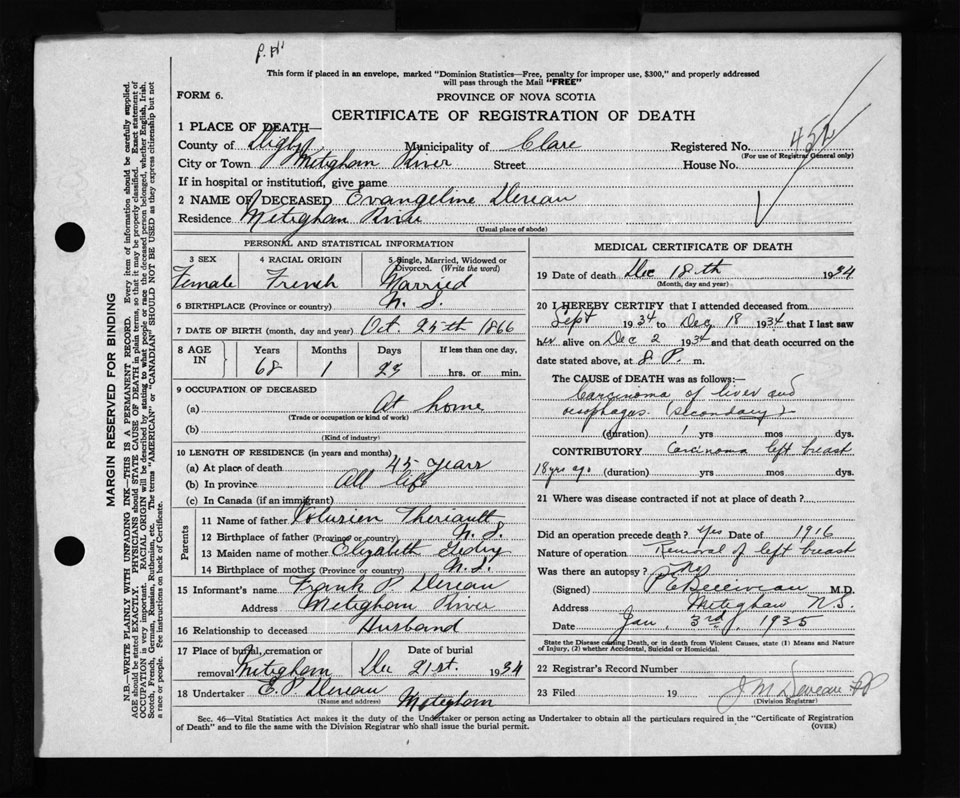 This form if placed in an envelope, marked "Dominion Statistics—Free, penalty for improper use, $300," and properly addressed
will pass through the Mail "FREE"
FORM 6.
PROVINCE OF NOVA SCOTIA
CERTIFICATE OF REGISTRATION OF DEATH
1 PLACE OF DEATH—
County of Digby Municipality of Clare Registered No. 452
(For use of Registrar General only)
City or Town Meteghan River Street House No.
If in hospital or institution, give name
2 NAME OF DECEASED Evangeline Dereau
Residence Meteghan River
(Usual place of abode)
PERSONAL AND STATISTICAL INFORMATION
3 SEX 4 RACIAL ORIGIN 5 Single, Married, Widowed or Divorced. (Write the word)
Female French Married
6 BIRTHPLACE (Province or country) N. S.
7 DATE OF BIRTH (month, day and year) Oct 25th 1866
8 AGE IN Years Months Days If less than one day,
68 1 23 hrs. or min.
9 OCCUPATION OF DECEASED
(a) At home
(Trade or occupation or kind of work)
(b)
(Kind of industry)
10 LENGTH OF RESIDENCE (in years and months)
(a) At place of death 45 years
(b) In province All life
(c) In Canada (if an immigrant)
Parents
11 Name of father Volusien Theriault
12 Birthplace of father (Province or country) N. S.
13 Maiden name of mother Elizabeth
14 Birthplace of mother (Province or country) N. S.
15 Informant's name Frank P. Dereau
Address Meteghan River
16 Relationship to deceased Husband
17 Place of burial, cremation or removal Date of burial
Meteghan Dec 21st 1934
18 Undertaker E. P. Dereau Meteghan
(Name and address)
MEDICAL CERTIFICATE OF DEATH
19 Date of death Dec 18th 1934
(Month, day and year)
20 I HEREBY CERTIFY that I attended deceased from
Sept 1934 to Dec 18 1934 that I last saw
her alive on Dec 2 1934 and that death occurred on the
date stated above, at 8 P. m.
The CAUSE OF DEATH was as follows:—
Carcinoma of liver and
oesophagus. (secondary)
(duration) 1 yrs mos dys.
CONTRIBUTORY Carcinoma left breast
18 yrs ago (duration) yrs mos dys.
21 Where was disease contracted if not at place of death?
Did an operation precede death? Yes Date of 1916
Nature of operation Removal of left breast
Was there an autopsy? No
(Signed) M.D.
Address Meteghan N.S.
Date Jan. 3rd 1935
State the Disease causing Death, or in death from Violent Causes, state (1) Means and Nature
of Injury, (2) whether Accidental, Suicidal or Homicidal.
22 Registrar's Record Number
23 Filed 19 J M Deveau
(Division Registrar)
Sec. 46—Vital Statistics Act makes it the duty of the Undertaker or person acting as Undertaker to obtain all the particulars required in the "Certificate of Registration
of Death" and to file the same with the Division Registrar who shall issue the burial permit. (OVER)
MARGIN RESERVED FOR BINDING
N.B.—WRITE PLAINLY WITH UNFADING INK—THIS IS A PERMANENT RECORD. Every item of information should be carefully supplied.
AGE should be stated EXACTLY. PHYSICIANS should STATE CAUSE OF DEATH in plain terms, so that it may be properly classified. Exact statement of
OCCUPATION is very important. RACIAL ORIGIN will be described by stating to what people or race the deceased person belonged, whether English, Irish,
Scotch, French, German, Russian, Ruthenian, etc. The terms "AMERICAN" or "CANADIAN" SHOULD NOT BE USED as they express citizenship but not
a race or people. See instructions on back of Certificate.